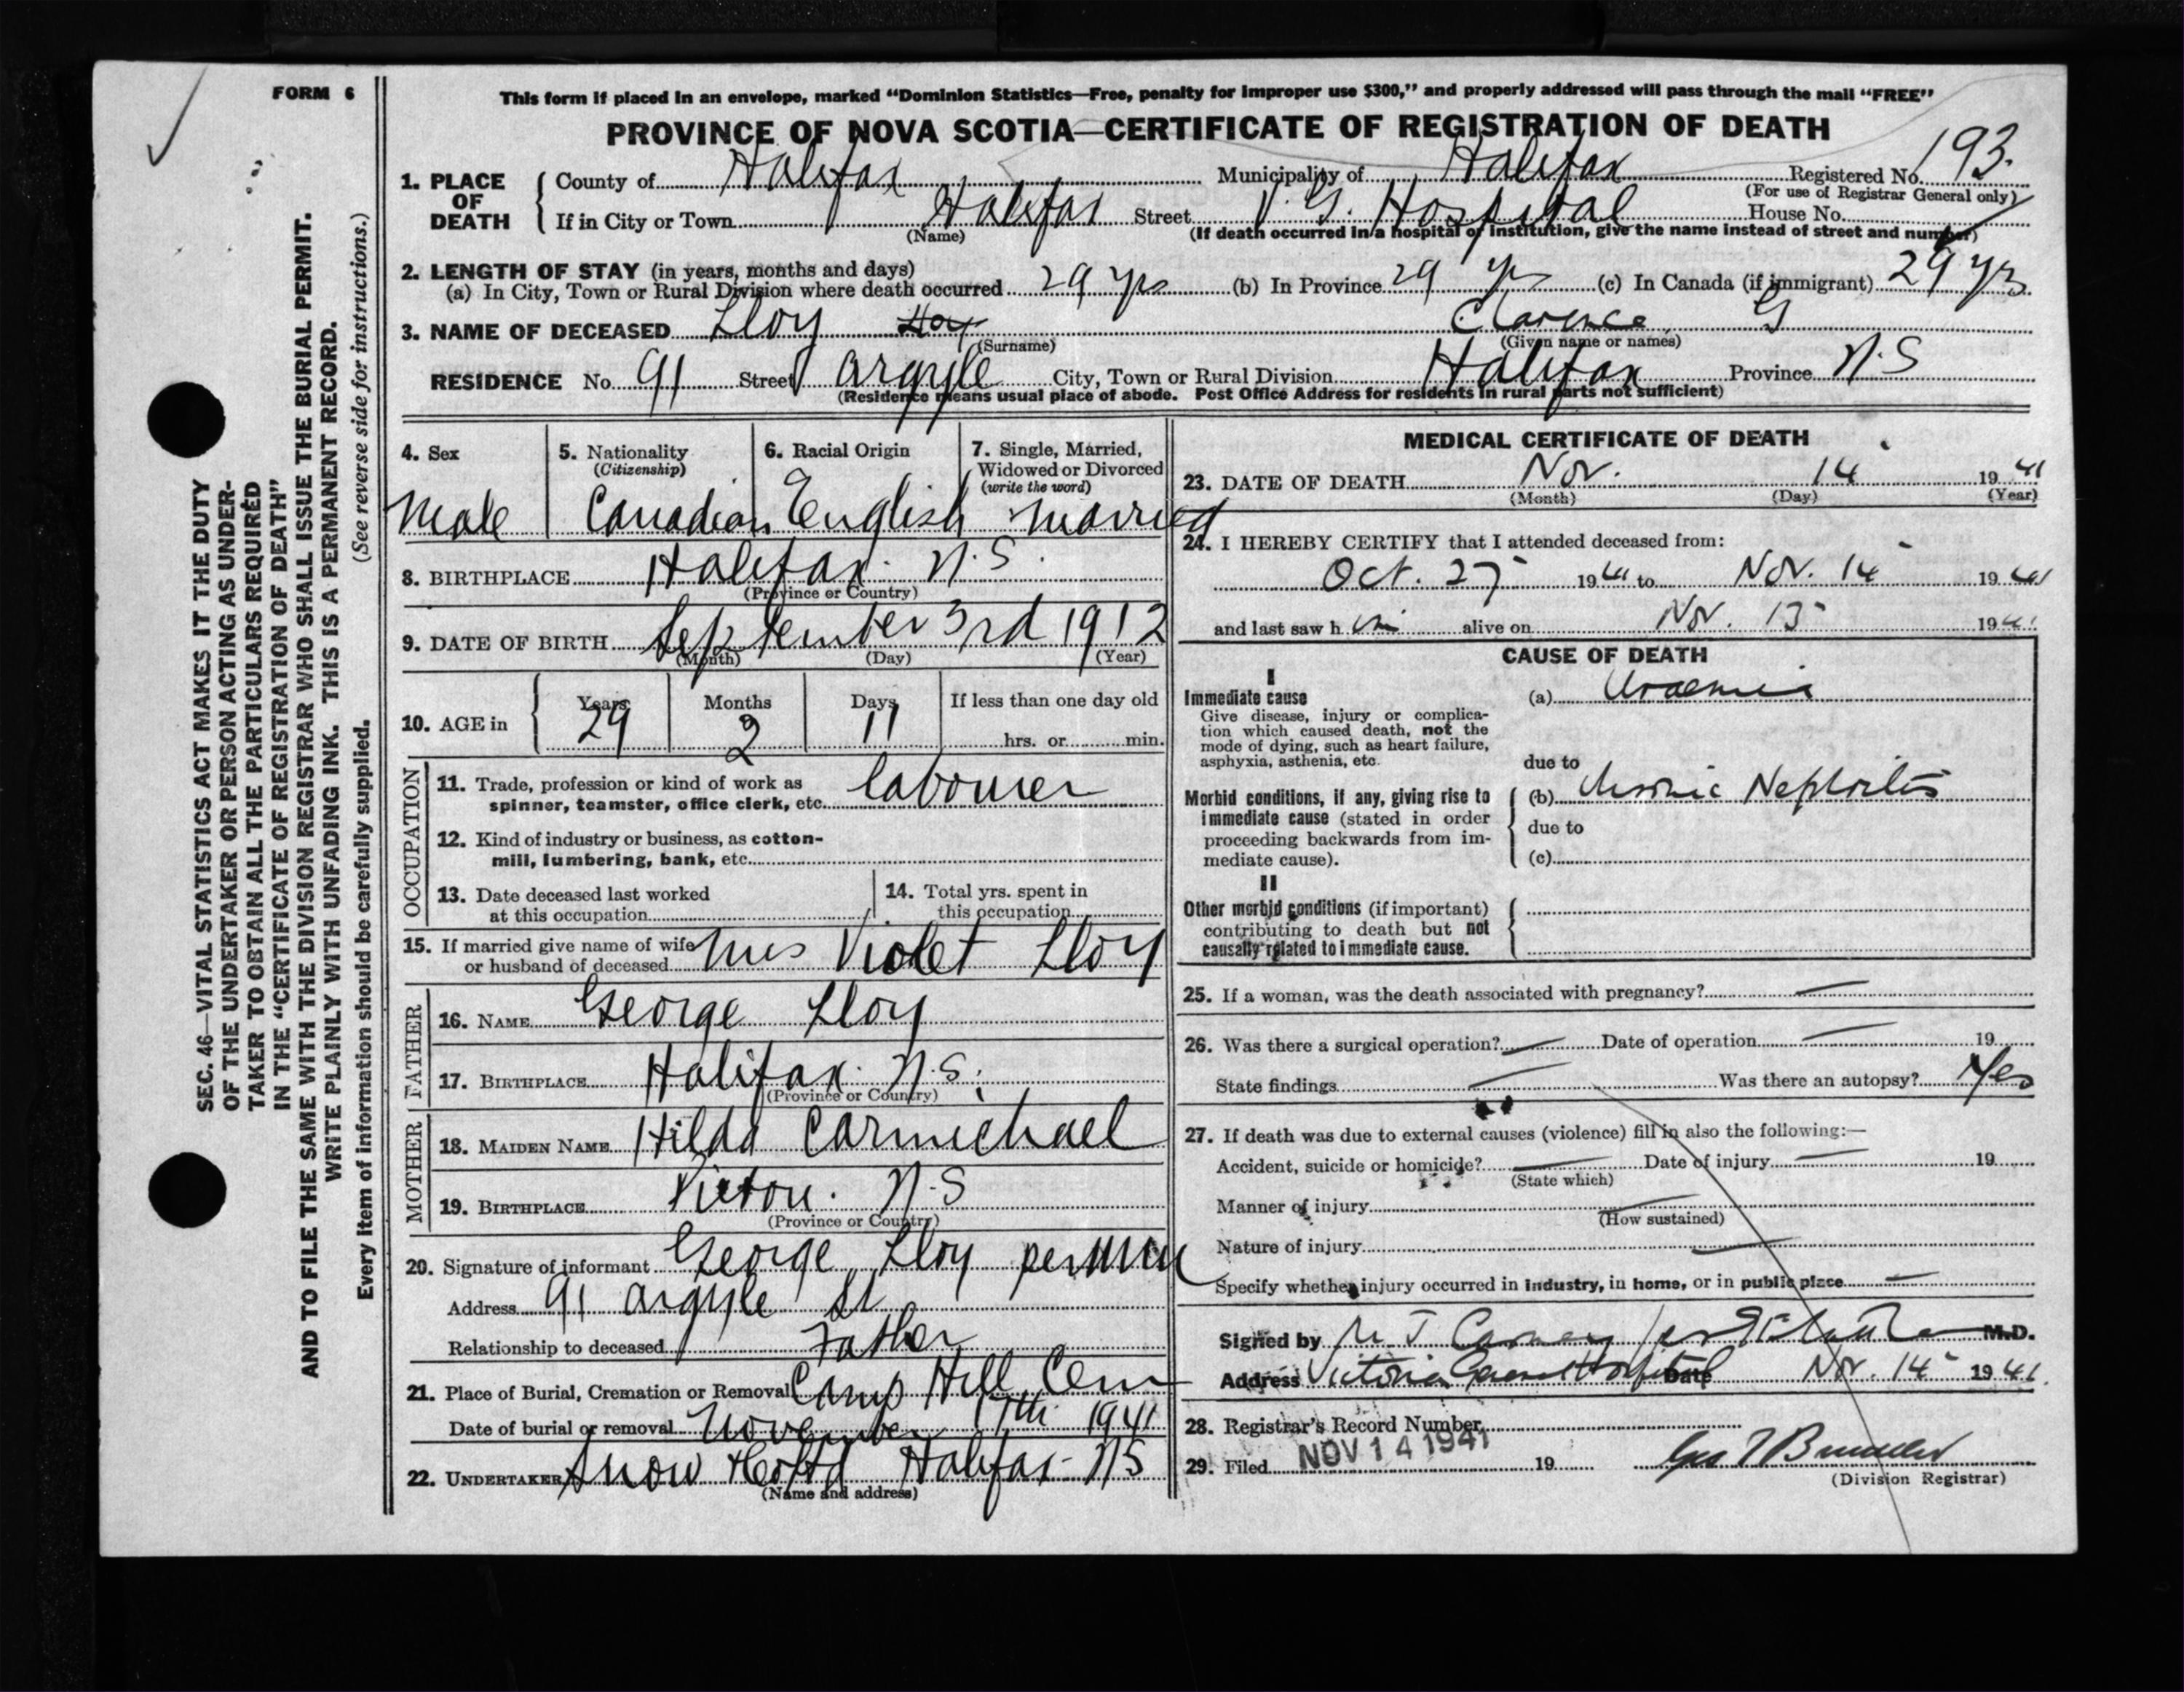 FORM 6
This form if placed in an envelope, marked "Dominion Statistics—Free, penalty for improper use $300," and properly addressed will pass through the mail "FREE"
PROVINCE OF NOVA SCOTIA—CERTIFICATE OF REGISTRATION OF DEATH
1. PLACE OF DEATH County of Halifax Municipality of Halifax Registered No. 193.
(For use of Registrar General only)
If in City or Town Halifax Street V. G. Hospital House No.
(Name) (If death occurred in a hospital or institution, give the name instead of street and number)
2. LENGTH OF STAY (in years, months and days)
(a) In City, Town or Rural Division where death occurred 29 yrs (b) In Province 29 yrs (c) In Canada (if immigrant) 29 yrs
3. NAME OF DECEASED Lloy Clarence G
(Surname) (Given name or names)
RESIDENCE No. 91 Street Argyle City, Town or Rural Division Halifax Province N.S
(Residence means usual place of abode. Post Office Address for residents in rural parts not sufficient)
4. Sex 5. Nationality (Citizenship) 6. Racial Origin 7. Single, Married, Widowed or Divorced (write the word)
Male Canadian English Married
8. BIRTHPLACE Halifax. N.S.
(Province or Country)
9. DATE OF BIRTH September 3rd 1912
(Month) (Day) (Year)
10. AGE in Years 29 Months 2 Days 11 If less than one day old
hrs. or min.
OCCUPATION
11. Trade, profession or kind of work as spinner, teamster, office clerk, etc. labourer
12. Kind of industry or business, as cotton-mill, lumbering, bank, etc.
13. Date deceased last worked at this occupation
14. Total yrs. spent in this occupation
15. If married give name of wife or husband of deceased Mrs Violet Lloy
FATHER
16. NAME George Lloy
17. BIRTHPLACE Halifax. N.S.
(Province or Country)
MOTHER
18. MAIDEN NAME Hilda Carmichael
19. BIRTHPLACE Pictou. N.S
(Province or Country)
20. Signature of informant George Lloy per
Address 91 Argyle St
Relationship to deceased Father
21. Place of Burial, Cremation or Removal Camp Hill Cem
Date of burial or removal November 17th 1941
22. UNDERTAKER Snow & Co Ltd Halifax - NS
(Name and address)
MEDICAL CERTIFICATE OF DEATH
23. DATE OF DEATH Nov. 14 1941
(Month) (Day) (Year)
24. I HEREBY CERTIFY that I attended deceased from:
Oct. 27 1941 to Nov. 14 1941
and last saw him alive on Nov. 13 1941
CAUSE OF DEATH
I
Immediate cause (a) Uraemia
Give disease, injury or complication which caused death, not the mode of dying, such as heart failure, asphyxia, asthenia, etc.
due to
Morbid conditions, if any, giving rise to immediate cause (stated in order proceeding backwards from immediate cause).
(b) Chronic Nephritis
due to
(c)
II
Other morbid conditions (if important) contributing to death but not causally related to immediate cause.
25. If a woman, was the death associated with pregnancy? —
26. Was there a surgical operation? — Date of operation — 19
State findings — Was there an autopsy? Yes
27. If death was due to external causes (violence) fill in also the following:—
Accident, suicide or homicide? — Date of injury — 19
(State which)
Manner of injury —
(How sustained)
Nature of injury —
Specify whether injury occurred in industry, in home, or in public place —
Signed by M.D.
Address Victoria General Hospital Date Nov. 14 1941.
28. Registrar's Record Number
29. Filed NOV 14 1941 19
(Division Registrar)
SEC. 46—VITAL STATISTICS ACT MAKES IT THE DUTY
OF THE UNDERTAKER OR PERSON ACTING AS UNDER-
TAKER TO OBTAIN ALL THE PARTICULARS REQUIRED
IN THE "CERTIFICATE OF REGISTRATION OF DEATH"
AND TO FILE THE SAME WITH THE DIVISION REGISTRAR WHO SHALL ISSUE THE BURIAL PERMIT.
WRITE PLAINLY WITH UNFADING INK. THIS IS A PERMANENT RECORD.
Every item of information should be carefully supplied. (See reverse side for instructions.)